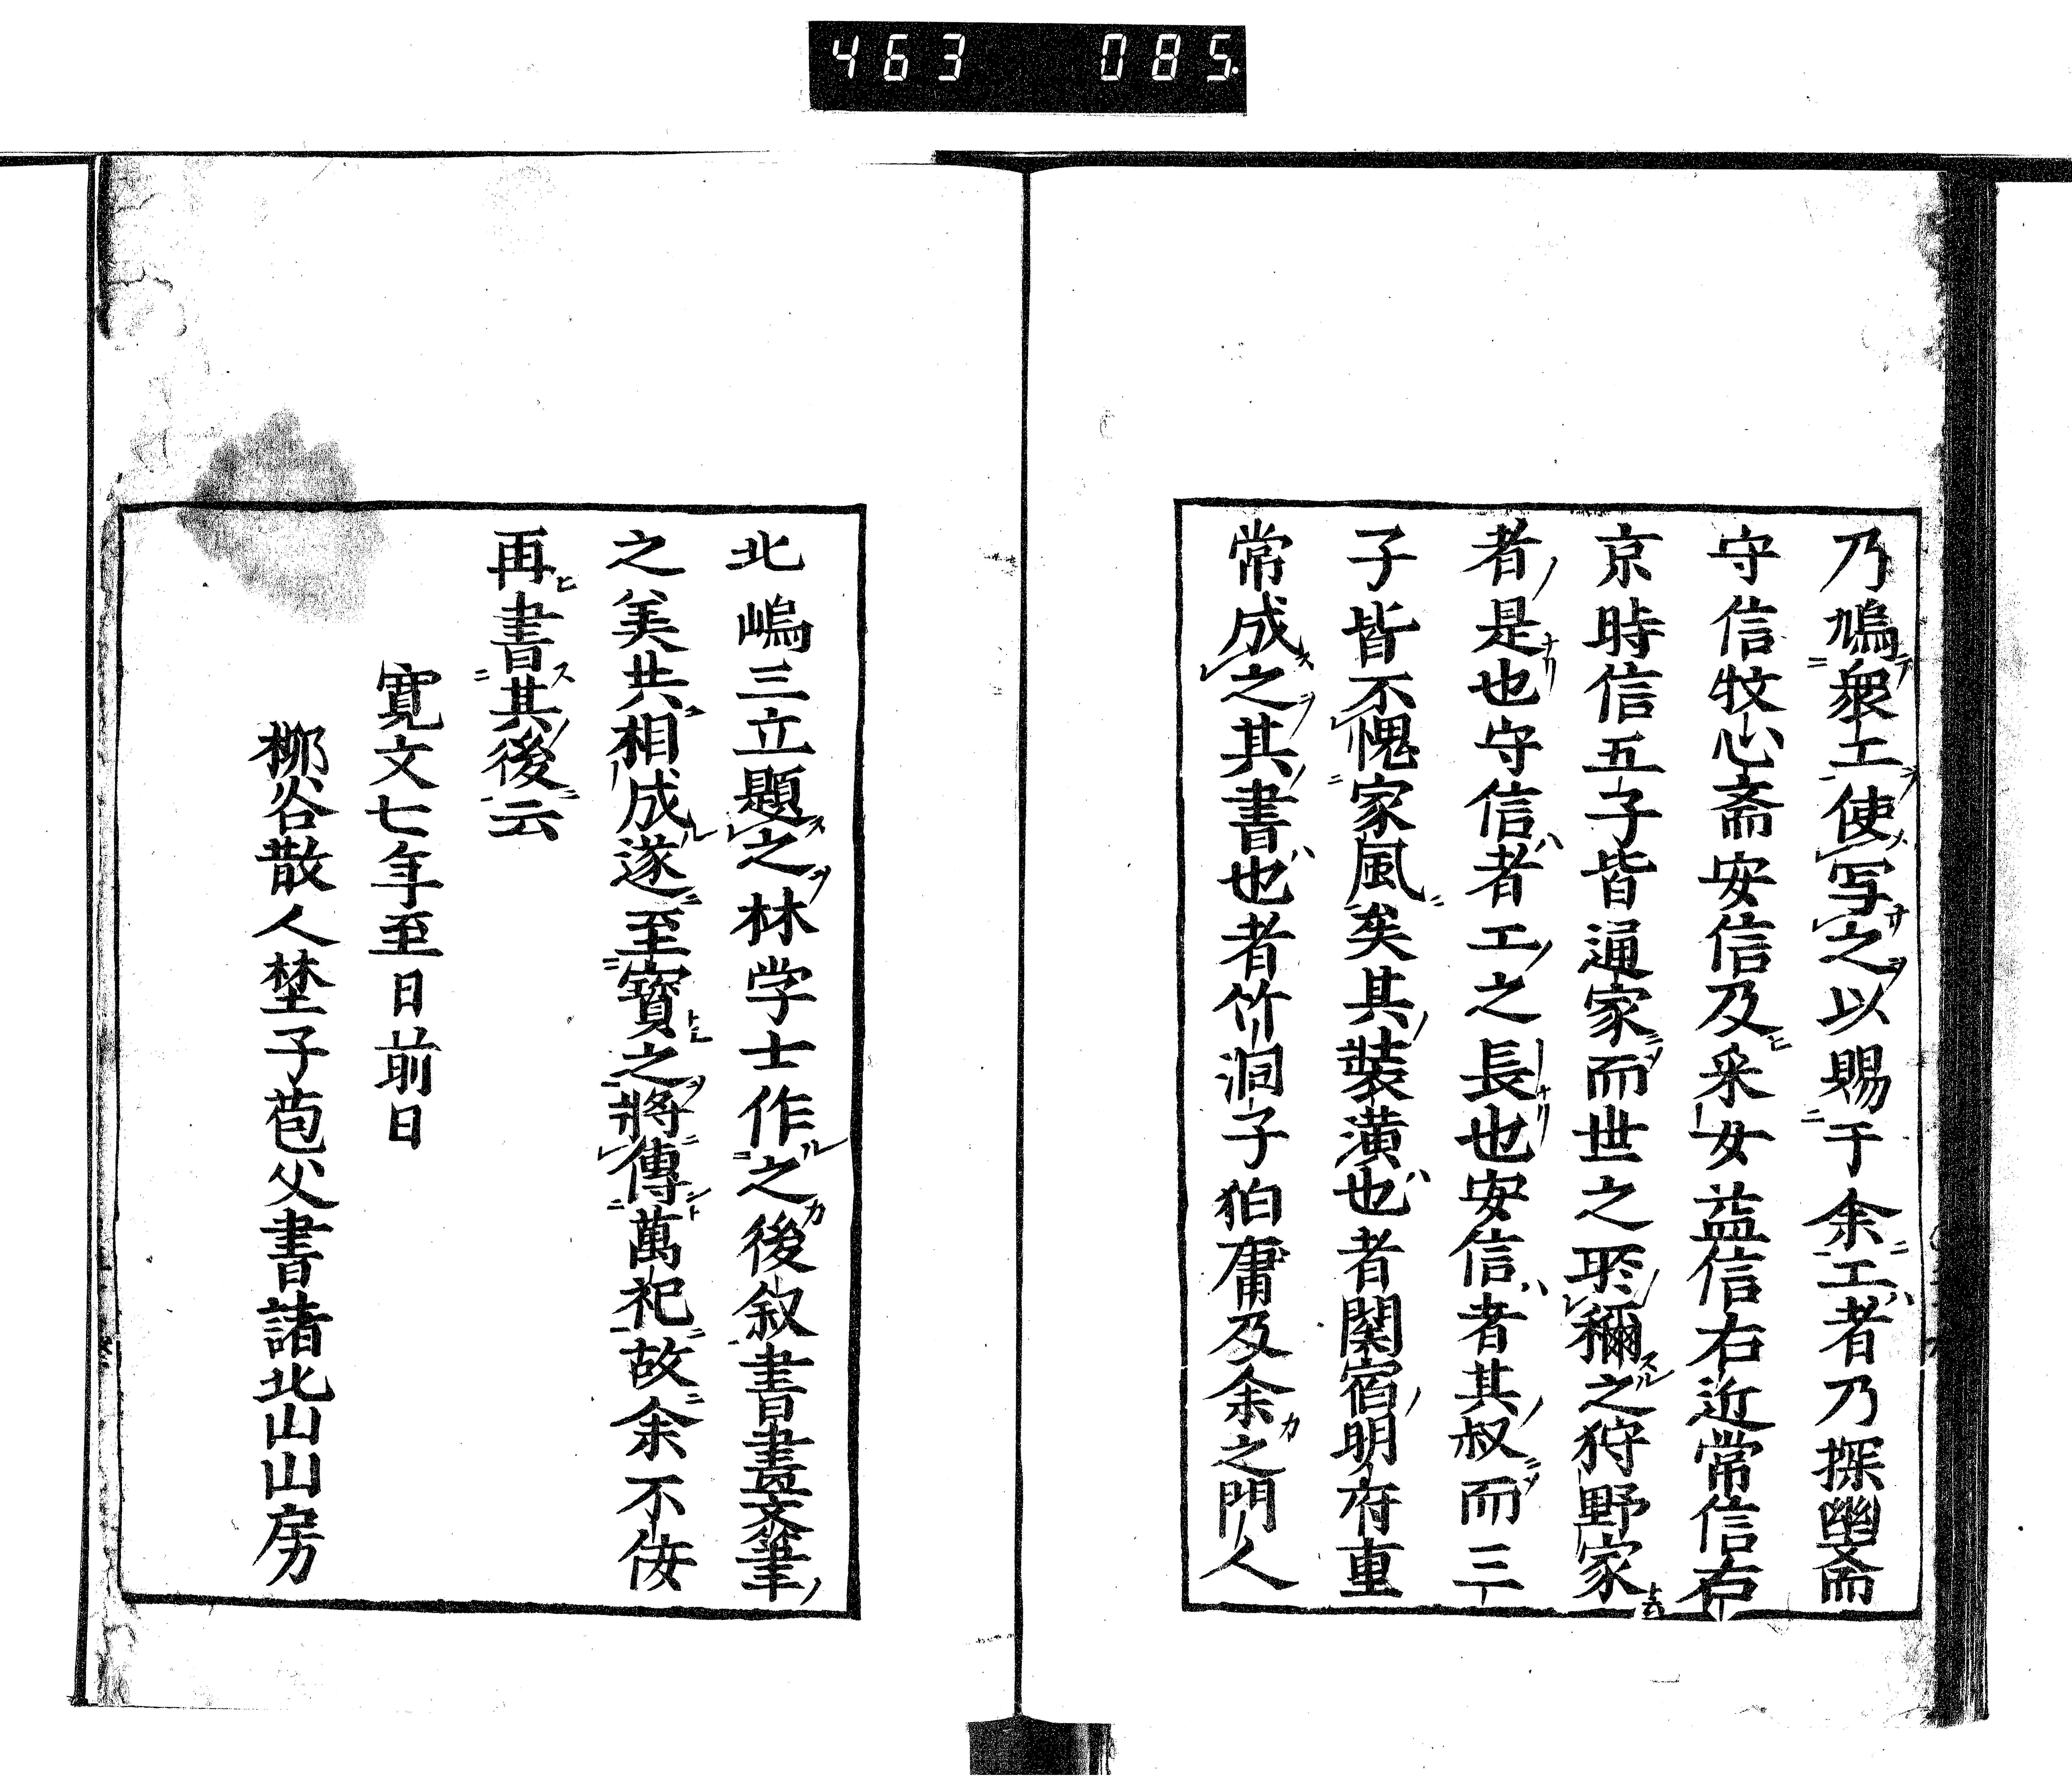 463 085
乃鳩衆工使写之以賜于余工者乃探幽斎
守信牧心斎安信及采女益信右近常信右
京時信五子皆通家而世之所稱之狩野家
者是也守信者工之長也安信者其叔而三
子皆不愧家風矣其裝潢也者関宿明府重
常成之其書也者竹洞子狛庸及余之門人
北嶋三立題之林学士作之後叙書畫文筆
之美共相成遂至寳之將傳萬祀故余不佞
再書其後云
寛文七年至日前日
栁谷散人埜子苞父書諸北山山房